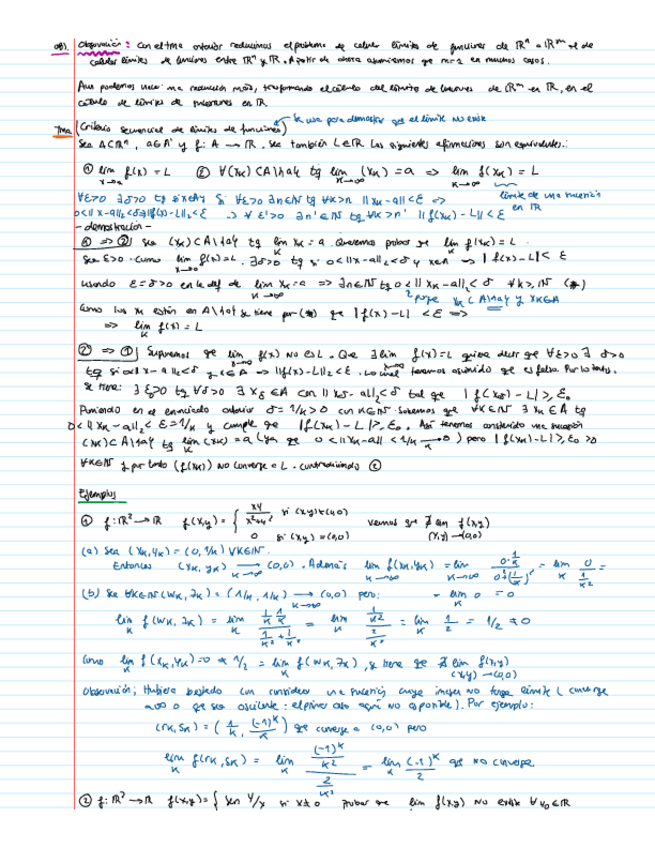 OBS. Observación: Con el tma anterior reducimos el problema de calcular límites de funciones de ℝⁿ a ℝᵐ al de
calcular límites de funciones entre ℝⁿ y ℝ. A partir de ahora asumiremos que m=1 en muchos casos.
Aun podemos hacer una reducción más, transformando el cálculo del límite de funciones de ℝⁿ en ℝ, en el
cálculo de límites de sucesiones en ℝ
Tma (Criterio secuencial de límites de funciones) Se usa para demostrar que el límite no existe
Sea A⊂ℝⁿ, a∈A' y f: A → ℝ. Sea también L∈ℝ. Las siguientes afirmaciones son equivalentes:
① lim x→a f(x) = L ② ∀(xₖ)⊂A\{a} tq lim k→∞ (xₖ) = a ⇒ lim k→∞ f(xₖ) = L
límite de una sucesión en ℝ
∀ε>0 ∃δ>0 tq si x∈A y
0<||x-a||₂<δ ⇒ |f(x)-L|<ε
Si ∀ε>0 ∃n∈ℕ tq ∀k>n ||xₖ-a||<ε ⇒
⇒ ∀ε'>0 ∃n'∈ℕ tq ∀k>n' ||f(xₖ)-L||<ε
- demostración -
① ⇒ ② Sea (xₖ)⊂A\{a} tq lim xₖ = a. Queremos probar que lim k f(xₖ) = L.
Sea ε>0. Como lim f(x)=L. ∃δ>0 tq si 0<||x-a||₂<δ y x∈A ⇒ |f(x)-L|<ε
usando ε=δ>0 en la def de lim k→∞ xₖ=a ⇒ ∃n∈ℕ tq 0<||xₖ-a||₂<δ ∀k≥n (*)
porque xₖ⊂A\{a} y xₖ∈A
Como los xₖ están en A\{a} se tiene por (*) que |f(x)-L|<ε ⇒
⇒ lim k f(x) = L
② ⇒ ① Supongamos que lim x→a f(x) no es L. Que ∃ lim x→a f(x)=L quiere decir que ∀ε>0 ∃δ>0
tq si 0<||x-a||₂<δ y x∈A ⇒ ||f(x)-L||<ε. Lo cual tenemos asumido que es falso. Por lo tanto,
se tiene: ∃ε₀>0 tq ∀δ>0 ∃x_δ∈A con ||x_δ-a||₂<δ tal que |f(x_δ)-L|≥ε₀
Poniendo en el enunciado anterior δ=1/k>0 con k∈ℕ. Sabemos que ∀k∈ℕ ∃xₖ∈A tq
0<||xₖ-a||₂<ε=1/k y cumple que |f(xₖ)-L|≥ε₀. Así tenemos construida una sucesión
(xₖ)⊂A\{a} tq lim k (xₖ)=a (ya que 0<||xₖ-a||<1/k → 0) pero |f(xₖ)-L|≥ε₀>0
∀k∈ℕ y por tanto (f(xₖ)) no converge a L. contradiciendo ②
Ejemplos
① f:ℝ²→ℝ f(x,y) = { xy/(x²+y²) si (x,y)≠(0,0)
0 si (x,y)=(0,0)
veamos que ∄ lim (x,y)→(0,0) f(x,y)
(a) Sea (xₖ,yₖ) = (0,1/k) ∀k∈ℕ.
Entonces (xₖ,yₖ) k→∞ (0,0). Además lim k→∞ f(xₖ,yₖ) = lim k→∞ (0·1/k)/(0²+(1/k)²) = lim k 0/(1/k²) =
= lim k 0 = 0
(b) Sea ∀k∈ℕ (wₖ,zₖ) = (1/k,1/k) k→∞ (0,0) pero:
lim k f(wₖ,zₖ) = lim k (1/k 1/k)/(1/k²+1/k²) = lim k (1/k²)/(2/k²) = lim k 1/2 = 1/2 ≠ 0
Como lim k f(xₖ,yₖ)=0 ≠ 1/2 = lim k f(wₖ,zₖ), se tiene que ∄ lim (x,y)→(0,0) f(x,y)
Observación; Hubiera bastado con considerar una sucesión cuya imagen no tenga límite (converge
a ∞ o que sea oscilante: el primer caso aquí no es posible). Por ejemplo:
(rₖ,sₖ) = (1/k, (-1)ᵏ/k) que converge a (0,0) pero
lim k f(rₖ,sₖ) = lim k ((-1)ᵏ/k²)/(2/k²) = lim k (-1)ᵏ/2 que no converge
② f:ℝ²→ℝ f(x,y) = { sen y/x si x≠0 Probar que lim f(x,y) no existe ∀y₀∈ℝ